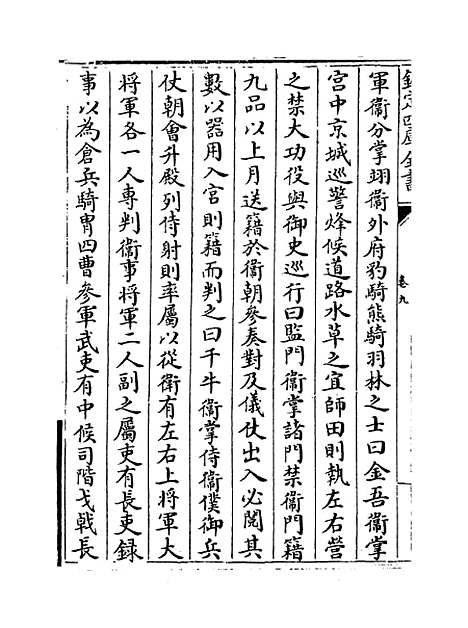 欽定四庫全書
卷九
軍衛分掌翊衛外府豹騎熊騎羽林之士曰金吾衛掌
宮中京城巡警烽候道路水草之宜師田則執左右營
之禁大功役與御史巡行曰監門衛掌諸門禁衛門籍
九品以上月送籍於衛朝參奏對及儀仗出入必閲其
數以器用入宫則籍而判之曰千牛衛掌侍衛僕御兵
仗朝會升殿列侍射則率屬以從衛有左右上將軍大
將軍各一人專判衛事將軍二人副之屬吏有長吏録
事以為倉兵騎胄四曹參軍武吏有中候司階戈戟長